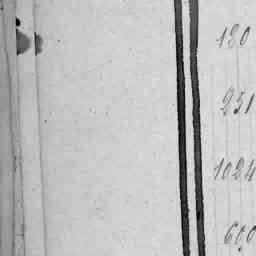 180
251
1024
600